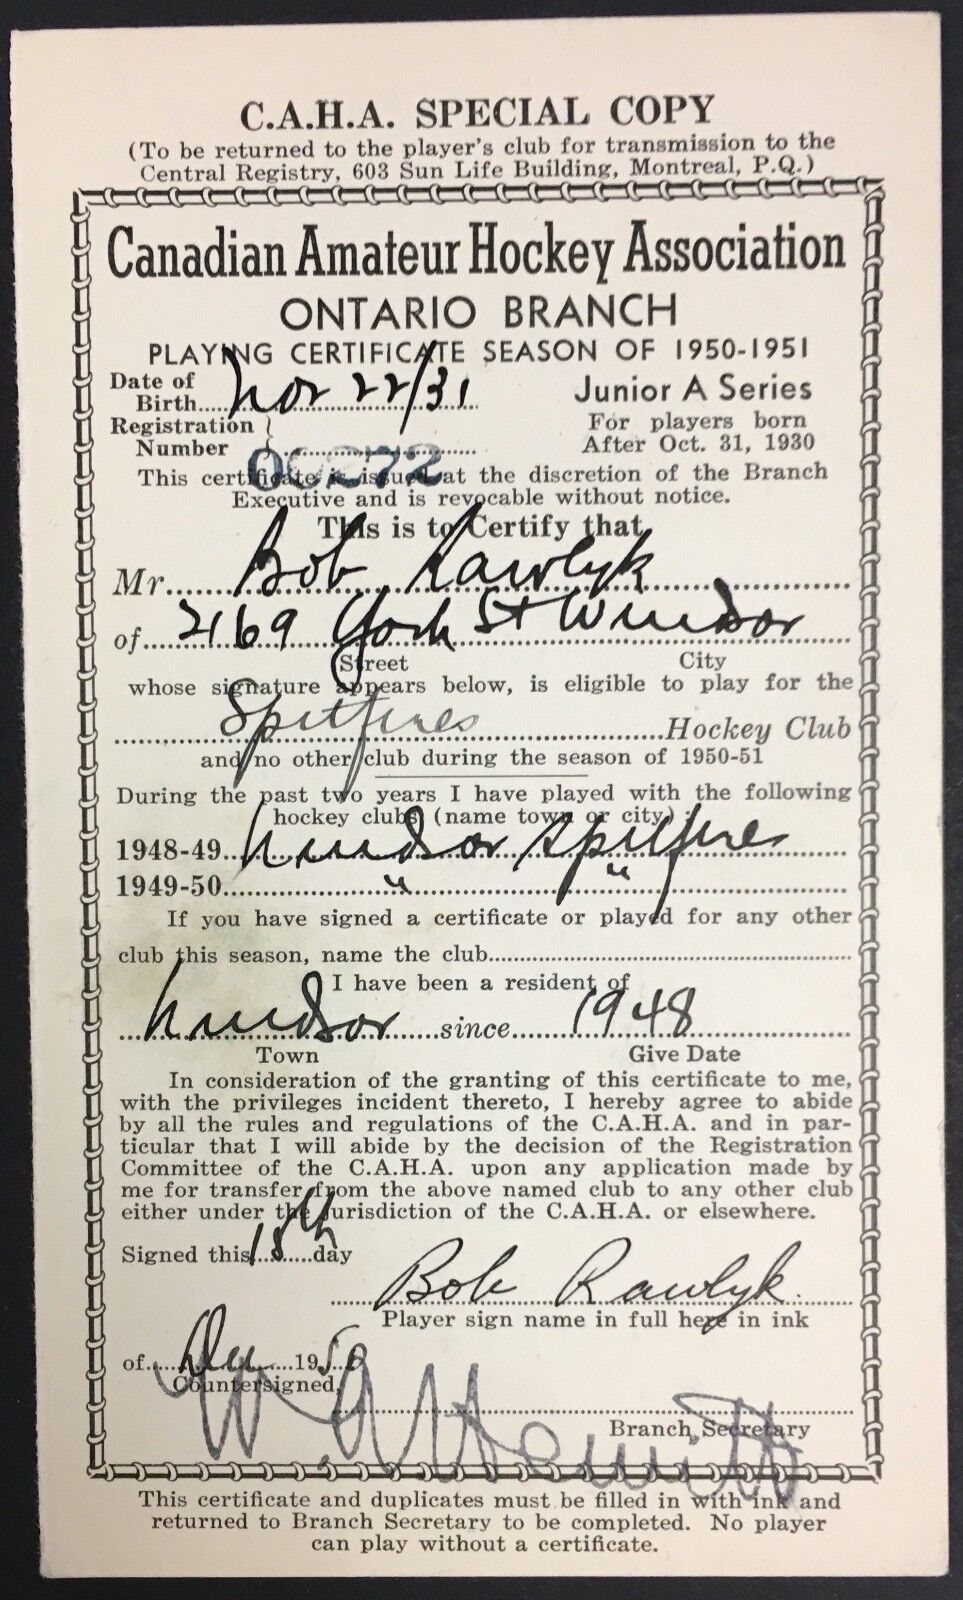 C.A.H.A. SPECIAL COPY
(To be returned to the player's club for transmission to the
Central Registry, 603 Sun Life Building, Montreal, P.Q.)
Canadian Amateur Hockey Association
ONTARIO BRANCH
PLAYING CERTIFICATE SEASON OF 1950-1951
Date of
Birth..... Nov 22/31
Junior A Series
Registration
Number 00272
For players born
After Oct. 31, 1930
This certificate is issued at the discretion of the Branch
Executive and is revocable without notice.
This is to Certify that
Mr..... Bob Rawlyk
of..... 2169 York St Windsor
Street City
whose signature appears below, is eligible to play for the
Spitfires ..... Hockey Club
and no other club during the season of 1950-51
During the past two years I have played with the following
hockey clubs (name town or city):
1948-49..... Windsor Spitfires
1949-50..... " "
If you have signed a certificate or played for any other
club this season, name the club.....
I have been a resident of
Windsor ..... since..... 1948
Town Give Date
In consideration of the granting of this certificate to me,
with the privileges incident thereto, I hereby agree to abide
by all the rules and regulations of the C.A.H.A. and in par-
ticular that I will abide by the decision of the Registration
Committee of the C.A.H.A. upon any application made by
me for transfer from the above named club to any other club
either under the jurisdiction of the C.A.H.A. or elsewhere.
Signed this 18th day
Bob Rawlyk
Player sign name in full here in ink
of..... Dec ..... 1950
Countersigned,
W. A. Hewitt
Branch Secretary
This certificate and duplicates must be filled in with ink and
returned to Branch Secretary to be completed. No player
can play without a certificate.